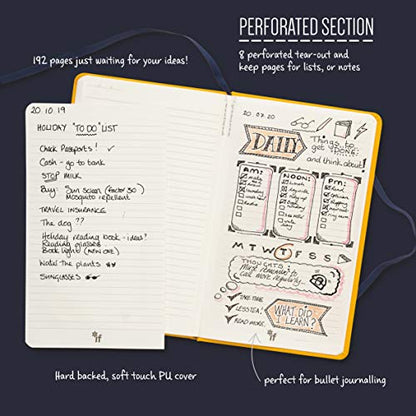 PERFORATED SECTION
192 pages just waiting for your ideas!
8 perforated tear-out and
keep pages for lists, or notes
20.10.19
HOLIDAY "TO DO" LIST
Check Passports! ✓
Cash - go to bank
STOP MILK
Buy: Sun screen (factor 30)
Mosquito repellent
TRAVEL INSURANCE
The dog ??
Holiday reading book - ideas?
Reading glasses
Book light (NEW ONE)
Water the plants
SUNGLASSES
if
20.07.20
DAILY
Things to
get DONE!
and think about!
AM:
NOON:
PM:
M T W T F S S
THOUGHTS
Must remember to
call more regularly...
✓ TAKE TIME
✓ LESS TEA!
✓ READ MORE
WHAT DID
I LEARN?
if
Hard backed, soft touch PU cover
perfect for bullet journalling